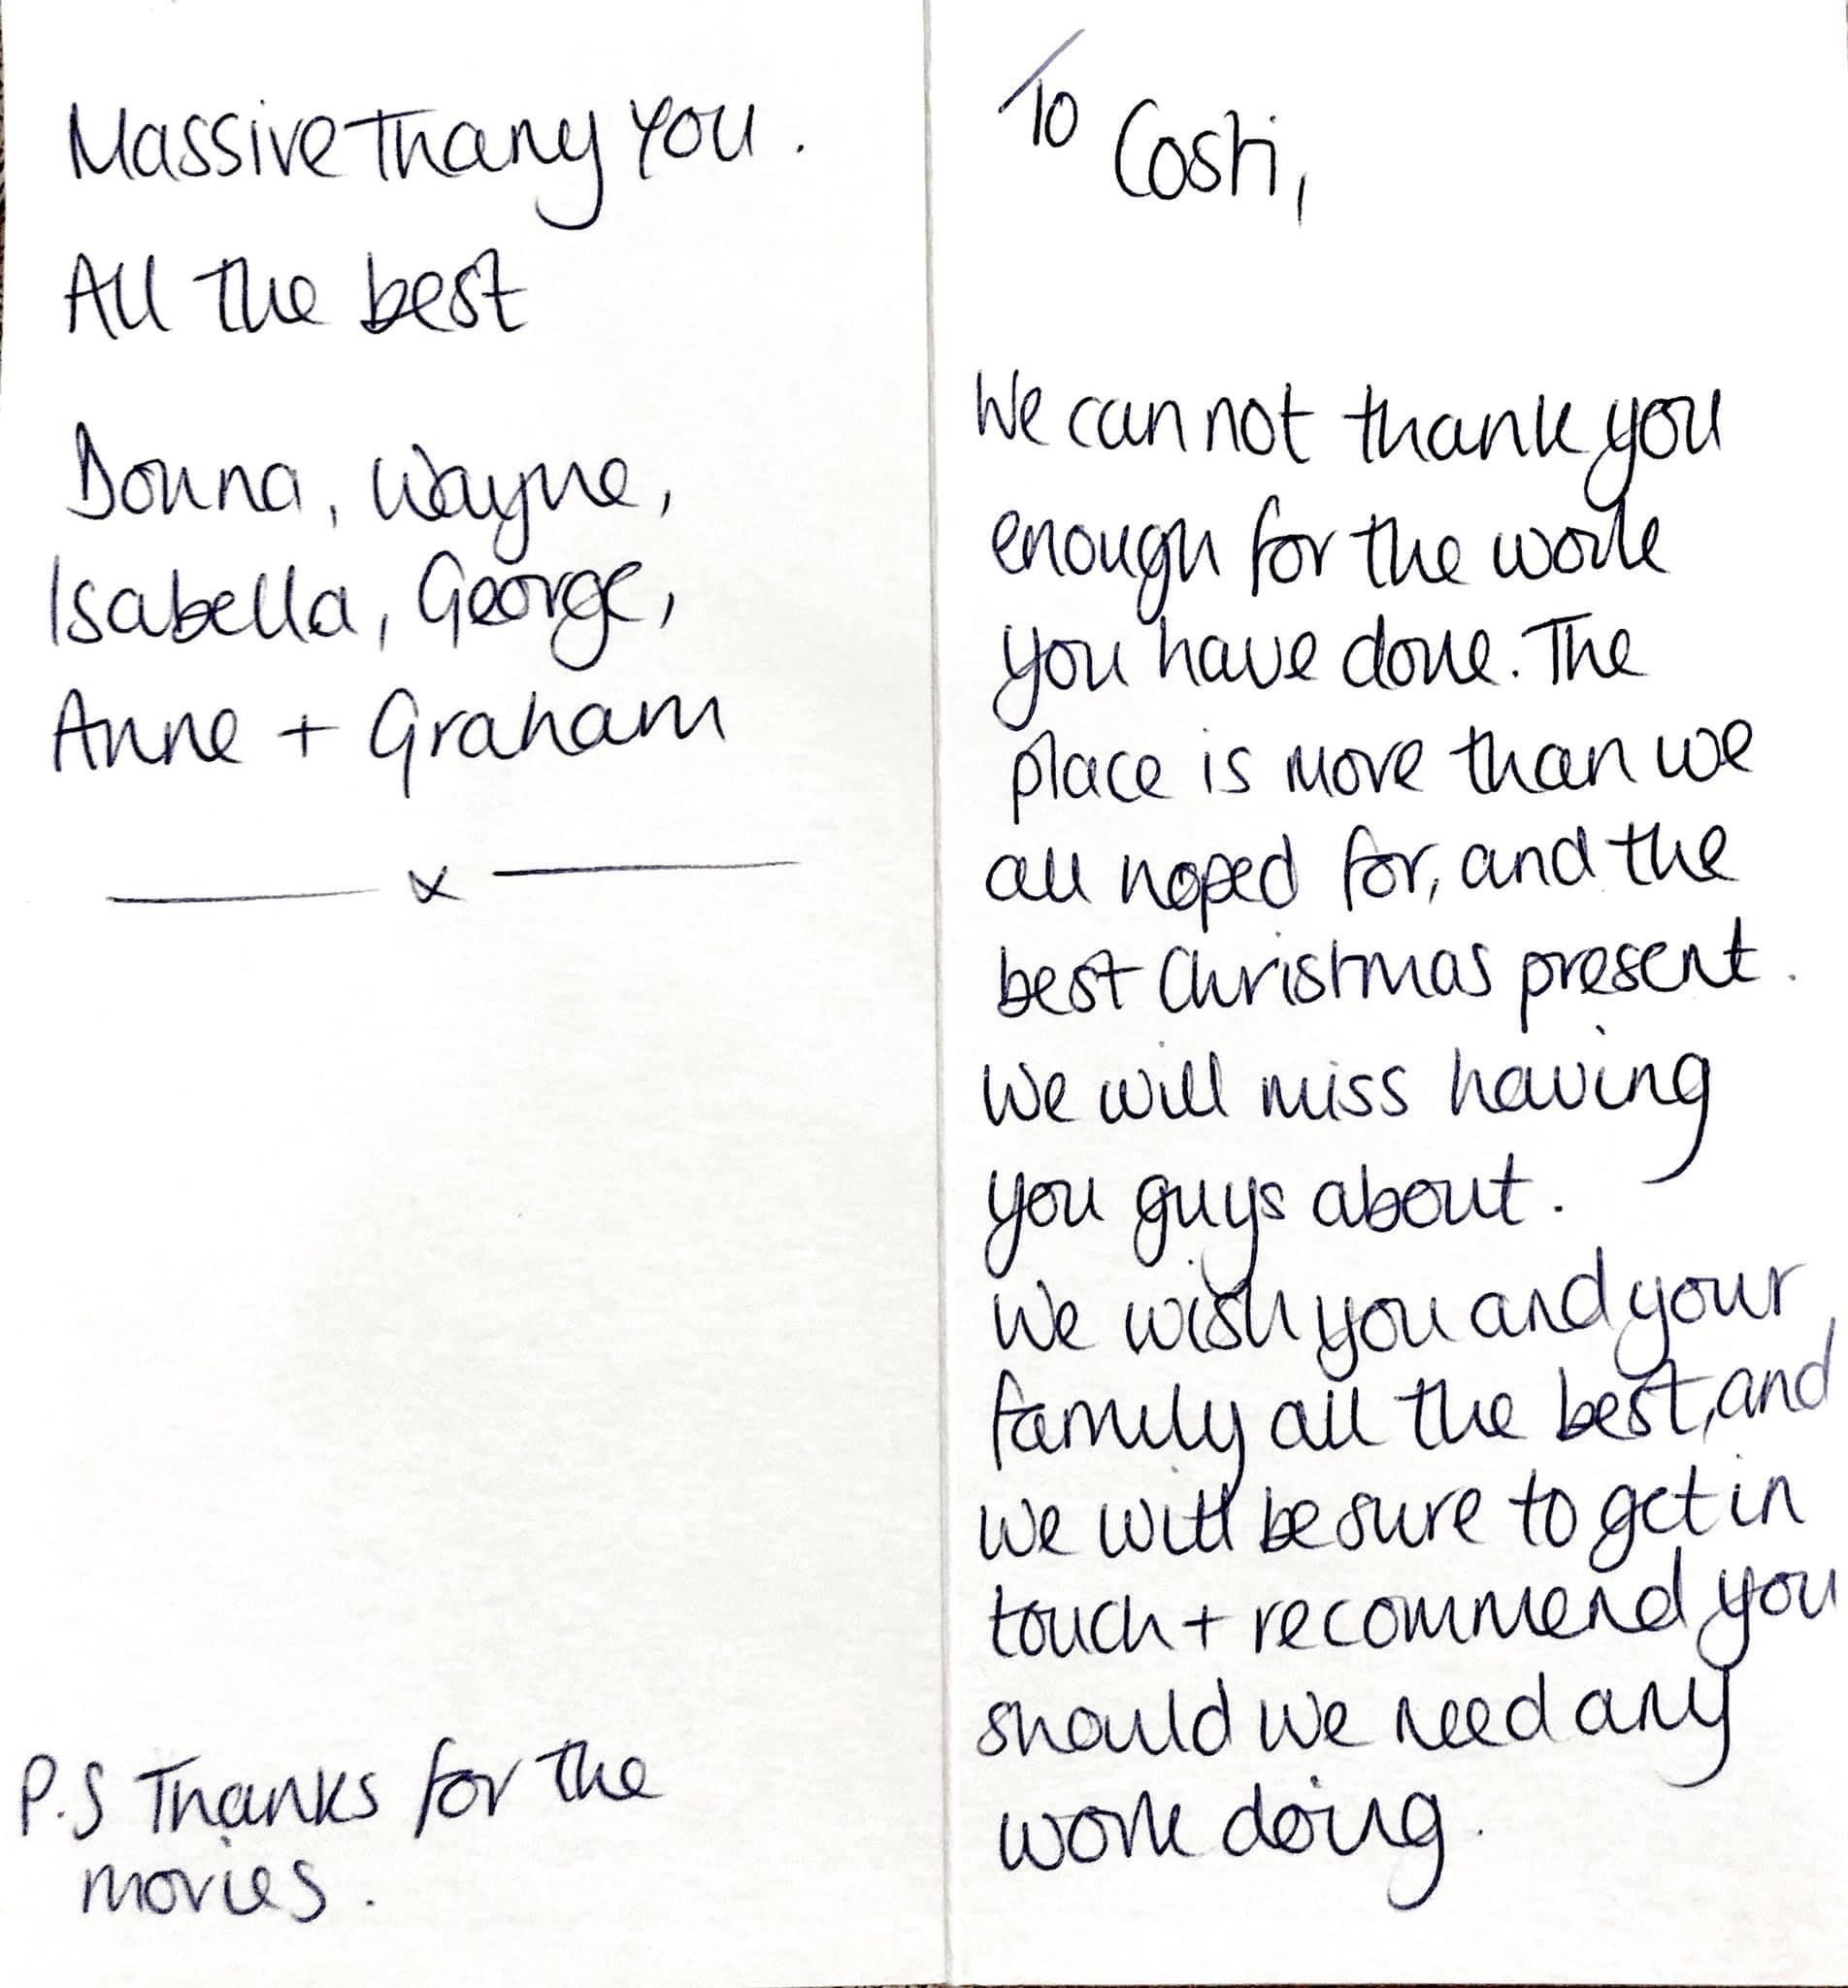 Massive Thany You.
All the best
Donna, Wayne,
Isabella, George,
Anne + Graham
x
P.S Thanks for the
movies.
To Costi,
We cannot thank you
enough for the work
you have done. The
place is more than we
all hoped for, and the
best Christmas present.
We will miss having
you guys about.
We wish you and your
family all the best, and
we will be sure to get in
touch + recommend you
should we need any
work doing.